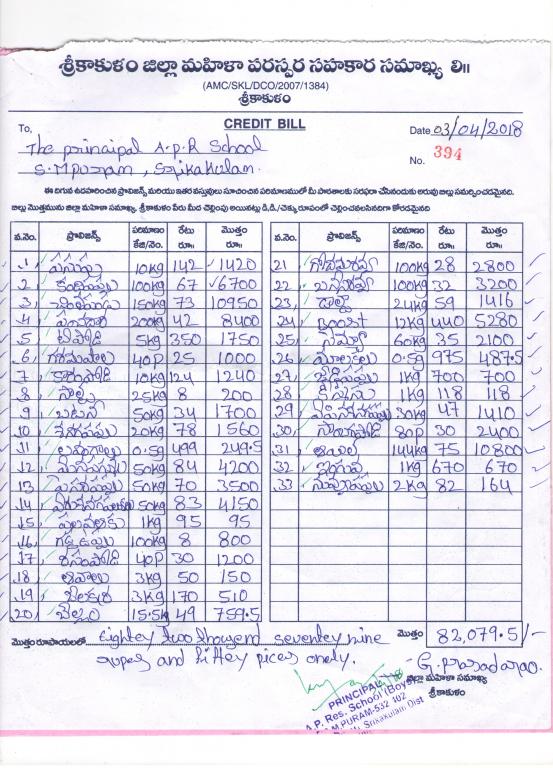 శ్రీకాకుళం జిల్లా మహిళా పరస్పర సహకార సమాఖ్య లి॥
(AMC/SKL/DCO/2007/1384)
శ్రీకాకుళం
CREDIT BILL
To,
Date 03/04/2018
The principal A.P.R School
No. 394
S.M puram, Srikakulam.
ఈ దిగువ ఉదహరించిన ప్రొవిజన్స్ మరియు ఇతర వస్తువులు సూచించిన పరిమాణములో మీ పాఠశాలకు సరఫరా చేసినందుకు అరువు బిల్లు సమర్పించడమైనది.
బిల్లు మొత్తమును జిల్లా మహిళా సమాఖ్య, శ్రీకాకుళం పేరు మీద చెల్లింపు అయినట్లు డి.డి./చెక్కు రూపంలో చెల్లించవలసినదిగా కోరడమైనది
వ.నెం. ప్రొవిజన్స్ పరిమాణం కేజి/నెం. రేటు రూ॥ మొత్తం రూ॥
1 పసుపు 10kg 142 1420
2 కందిపప్పు 100kg 67 6700
3 చింతపండు 150kg 73 10950
4 పంచదార 200kg 42 8400
5 టీపొడి 5kg 350 1750
6 గరంమసాలా 40P 25 1000
7 కారంపొడి 10kg 124 1240
8 సాల్ట్ 25kg 8 200
9 బఠానీ 50kg 34 1700
10 20kg 78 1560
11 లవంగాలు 0.5g 499 249.5
12 మినపప్పు 50kg 84 4200
13 పెసరపప్పు 50kg 70 3500
14 50kg 83 4150
15 1kg 95 95
16 100kg 8 800
17 రసంపొడి 40P 30 1200
18 ఆవాలు 3kg 50 150
19 జీలకర్ర 3kg 170 510
20 బెల్లం 15.5kg 49 759.5
వ.నెం. ప్రొవిజన్స్ పరిమాణం కేజి/నెం. రేటు రూ॥ మొత్తం రూ॥
21 గోధుమరవ్వ 100kg 28 2800
22 100kg 32 3200
23 డాల్డా 24kg 59 1416
24 Boost 12kg 440 5280
25 60kg 35 2100
26 యాలకులు 0.5g 975 487.5
27 జీడిపప్పు 1kg 700 700
28 1kg 118 118
29 30kg 47 1410
30 80P 30 2400
31 ఆయిల్ 144kg 75 10800
32 ఇంగువ 1kg 670 670
33 నువ్వుపప్పు 2kg 82 164
మొత్తం రూపాయలలో Eightey two thousend seventey nine
మొత్తం 82,079.5/-
rupes and fiftey pices onely.
G. prasadarao.
జిల్లా మహిళా సమాఖ్య
శ్రీకాకుళం
PRINCIPAL
A.P. Res. School (Boys)
S.M.PURAM-532 402
Srikakulam Dist